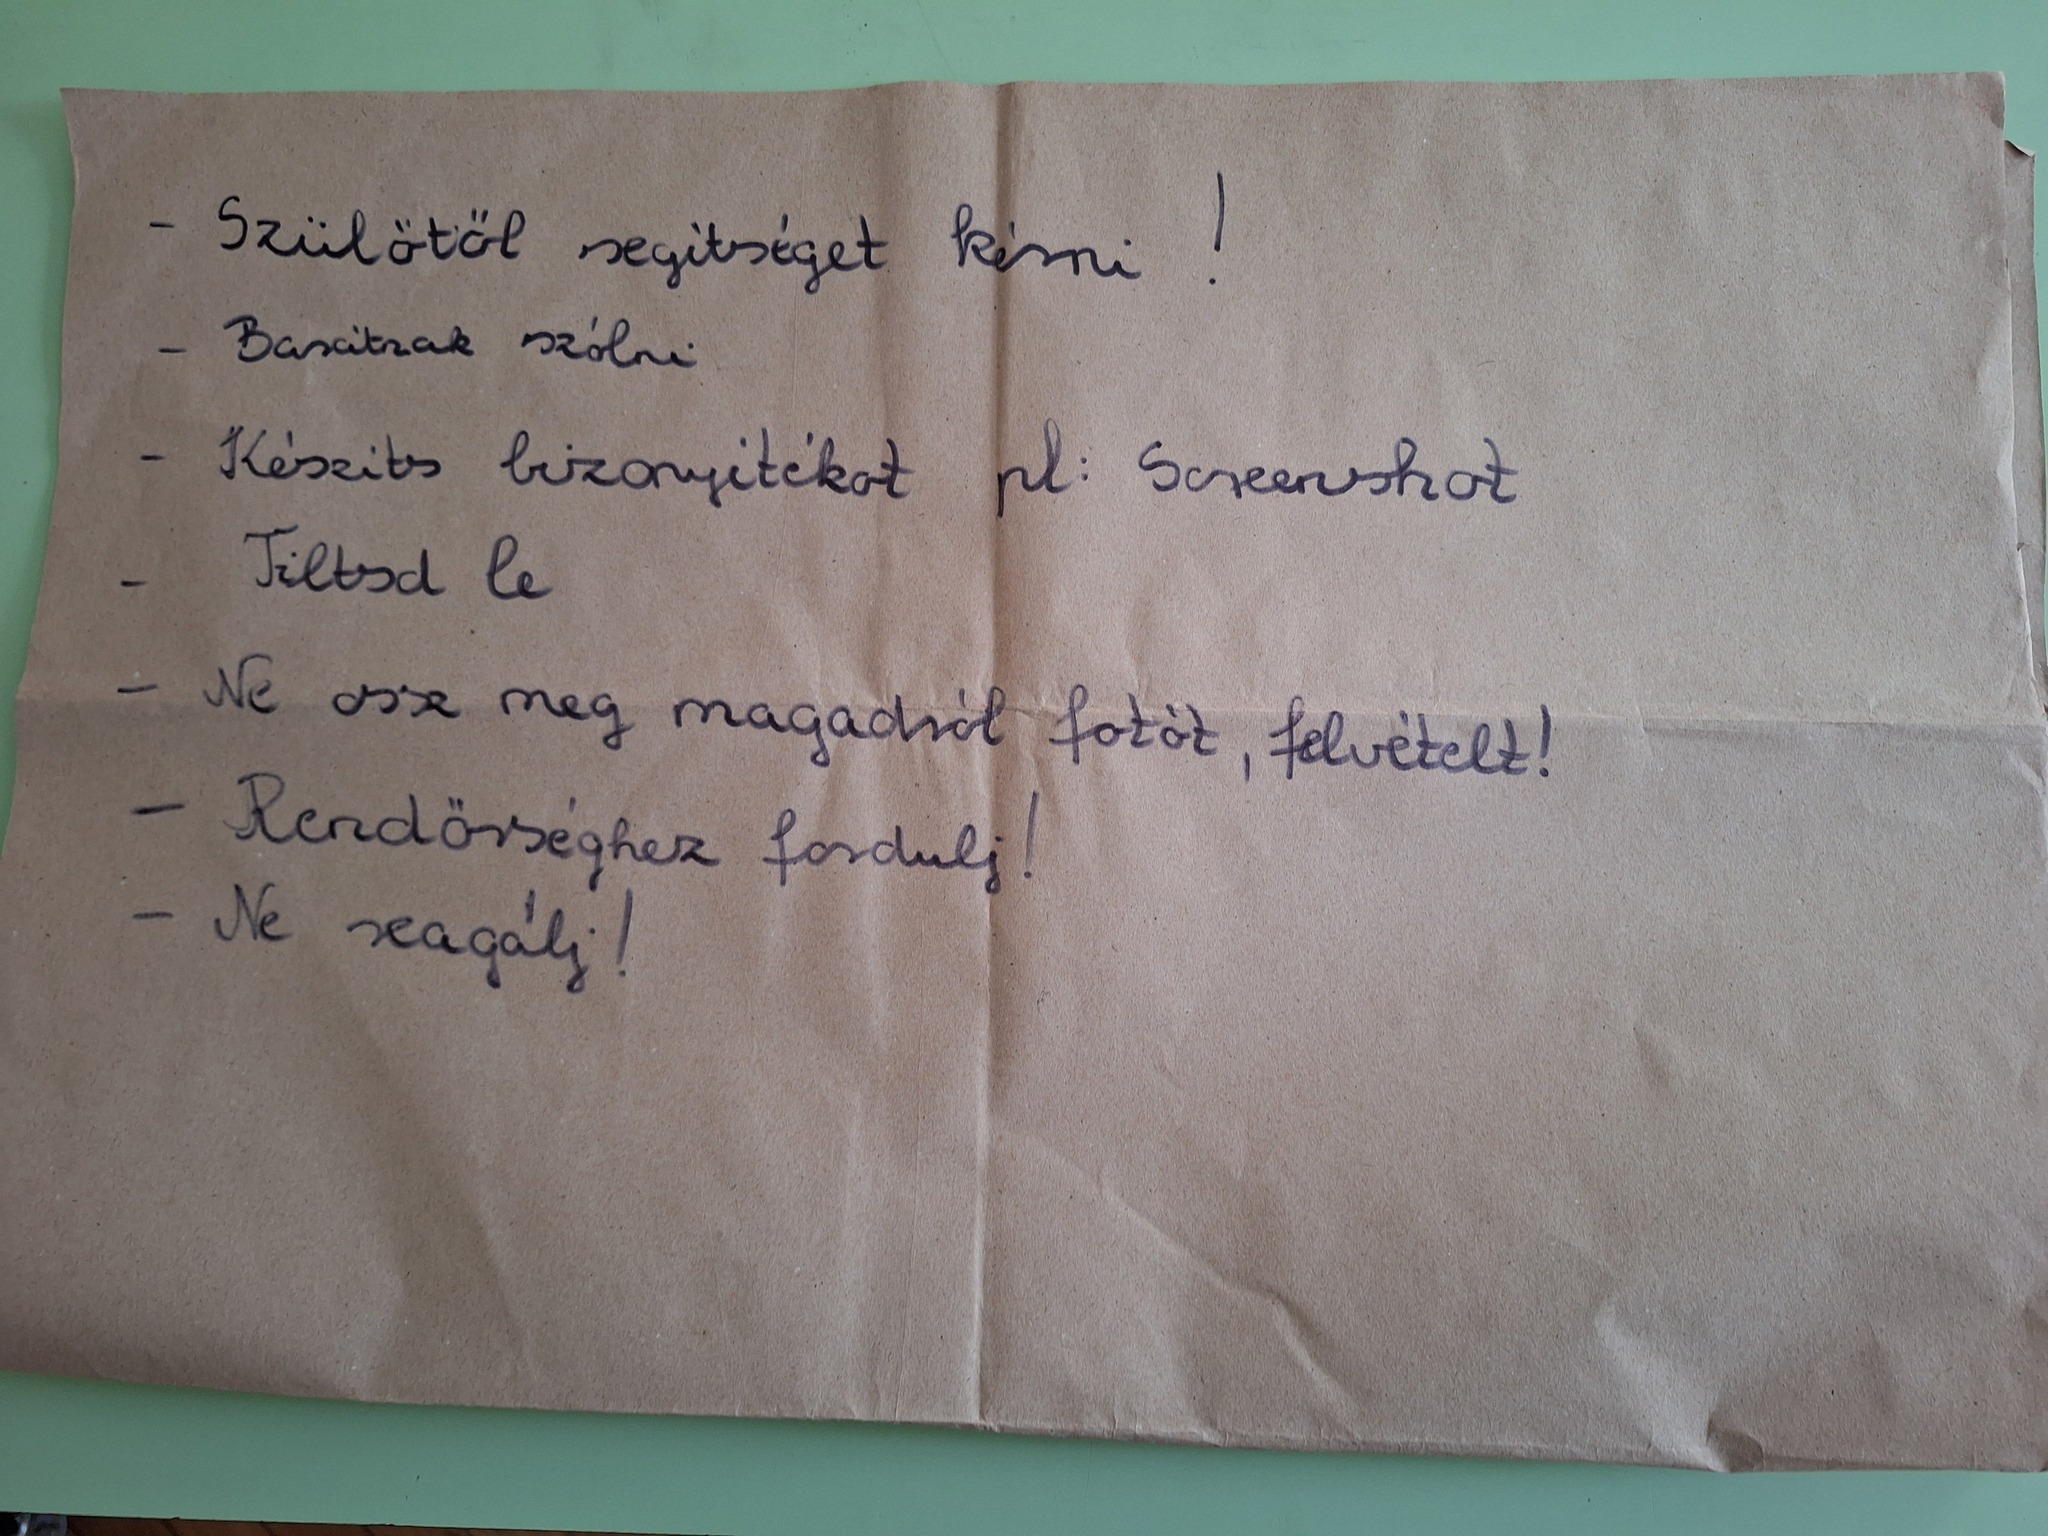 - Szülőtől segítséget kérni !
- Barátnak szólni
- Készíts bizonyítékot pl: Screenshot
- Tiltsd le
- Ne ossz meg magadról fotót, felvételt!
- Rendőrséghez fordulj!
- Ne reagálj!